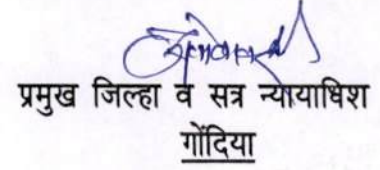 प्रमुख जिल्हा व सत्र न्यायाधिश
गोंदिया